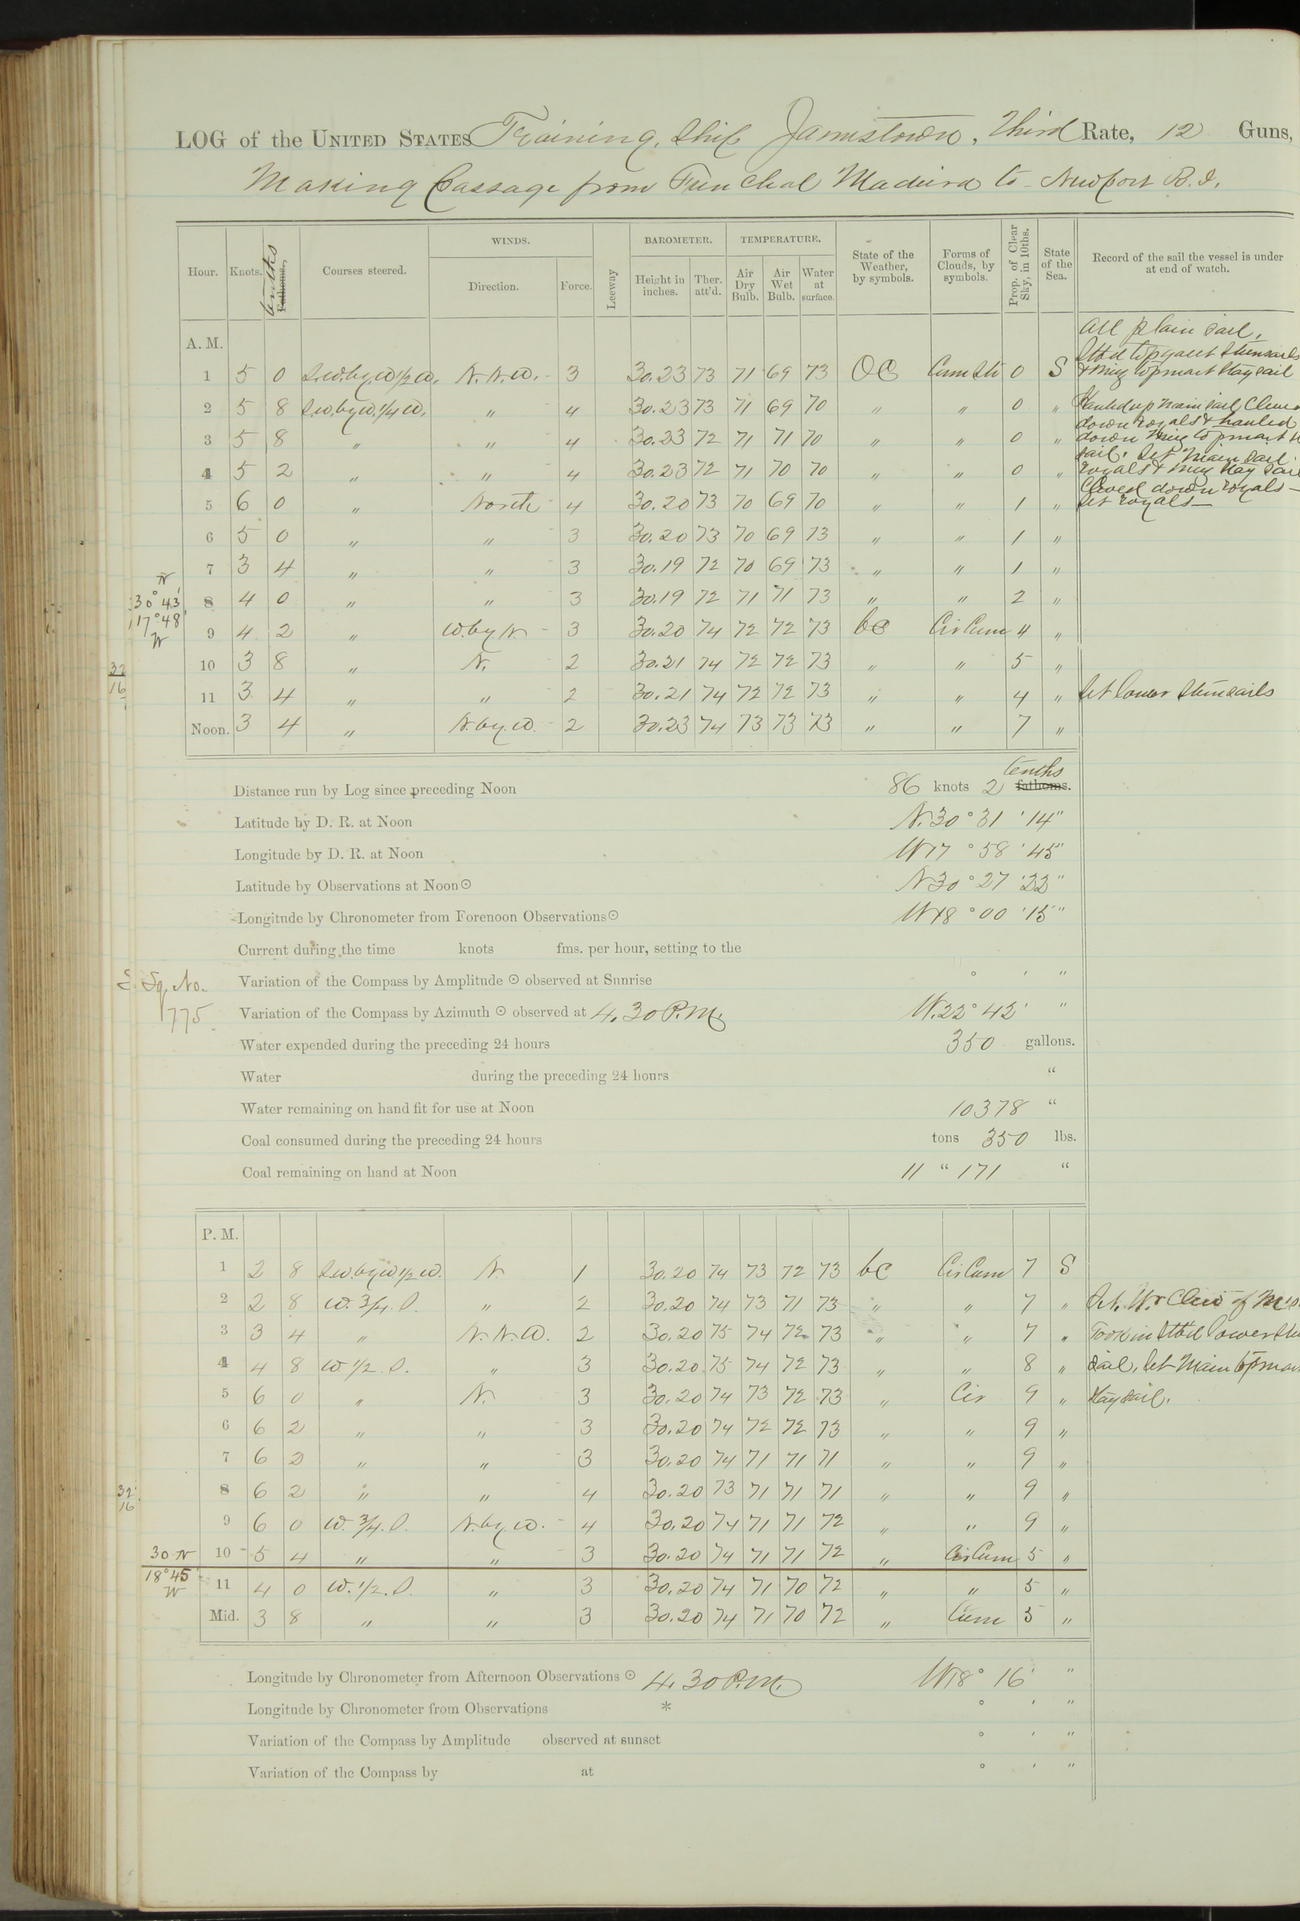 LOG of the UNITED STATES Training Ship Jamestown, Third Rate, 12 Guns,
Making Passage from Funchal Madeira to Newport R.I.
Hour. Knots. tenths Fathoms. Courses steered. WINDS. Direction. Force. Leeway BAROMETER. Height in inches. Ther. att'd. TEMPERATURE. Air Dry Bulb. Air Wet Bulb. Water at surface. State of the Weather, by symbols. Forms of Clouds, by symbols. Prop. of Clear Sky, in 10ths. State of the Sea. Record of the sail the vessel is under at end of watch.
A. M. All plain sail,
Stb'd topgallt Stunsails
1 5 0 S.W. by W 1/2 W. N.N.W. 3 30.23 73 71 69 73 OC Cum Str 0 S & Miz topmast Stay sail
2 5 8 S.W. by W. 1/4 W. " 4 30.23 73 71 69 70 " " 0 " Hauled up main sail, Clewed
down royals & hauled
3 5 8 " " 4 30.23 72 71 71 70 " " 0 " down Miz topmast
sail. Set Main sail
4 5 2 " " 4 30.23 72 71 70 70 " " 0 " royals & Miz Stay Sail
Clewed down royals—
5 6 0 " North 4 30.20 73 70 69 70 " " 1 " Set royals—
6 5 0 " " 3 30.20 73 70 69 73 " " 1 "
7 3 4 " " 3 30.19 72 70 69 73 " " 1 "
N
30° 43'
17° 48'
W
8 4 0 " " 3 30.19 72 71 71 73 " " 2 "
9 4 2 " W. by N 3 30.20 74 72 72 73 bc Cir Cum 4 "
32
16
10 3 8 " N. 2 30.21 74 72 72 73 " " 5 "
11 3 4 " " 2 30.21 74 72 72 73 " " 4 " Set lower Stunsails
Noon. 3 4 " N. by W. 2 30.23 74 73 73 73 " " 7 "
Distance run by Log since preceding Noon 86 knots 2 tenths fathoms.
Latitude by D. R. at Noon N. 30° 31' 14"
Longitude by D. R. at Noon W 17° 58' 45"
Latitude by Observations at Noon ☉ N 30° 27' 22"
Longitude by Chronometer from Forenoon Observations ☉ W 18° 00' 15"
Current during the time knots fms. per hour, setting to the
Variation of the Compass by Amplitude ☉ observed at Sunrise ° ' "
Sq. No.
775
Variation of the Compass by Azimuth ☉ observed at 4.30 P.M. W. 22° 42' "
Water expended during the preceding 24 hours 350 gallons.
Water during the preceding 24 hours "
Water remaining on hand fit for use at Noon 10378 "
Coal consumed during the preceding 24 hours tons 350 lbs.
Coal remaining on hand at Noon 11 " 171 "
P. M.
1 2 8 S.W. by W 1/2 W. N. 1 30.20 74 73 72 73 bc Cir Cum 7 S
2 2 8 W. 3/4 S. " 2 30.20 74 73 71 73 " " 7 " Set
3 3 4 " N.N.W. 2 30.20 75 74 72 73 " " 7 " Took in Stb'd lower
4 4 8 W 1/2 S. " 3 30.20 75 74 72 73 " " 8 " sail, Set Main topmast
5 6 0 " N. 3 30.20 74 73 72 73 " Cir 9 " Stay sail.
6 6 2 " " 3 30.20 74 72 72 73 " " 9 "
7 6 2 " " 3 30.20 74 71 71 71 " " 9 "
32
16
8 6 2 " " 4 30.20 73 71 71 71 " " 9 "
9 6 0 W. 3/4 S. N. by W. 4 30.20 74 71 71 72 " " 9 "
30 N
18° 45
W
10 5 4 " " 3 30.20 74 71 71 72 " Cir Cum 5 "
11 4 0 W. 1/2 S. " 3 30.20 74 71 70 72 " " 5 "
Mid. 3 8 " " 3 30.20 74 71 70 72 " Cum 5 "
Longitude by Chronometer from Afternoon Observations ☉ 4.30 P.M. W 18° 16' "
Longitude by Chronometer from Observations * ° ' "
Variation of the Compass by Amplitude observed at sunset ° ' "
Variation of the Compass by at ° ' "